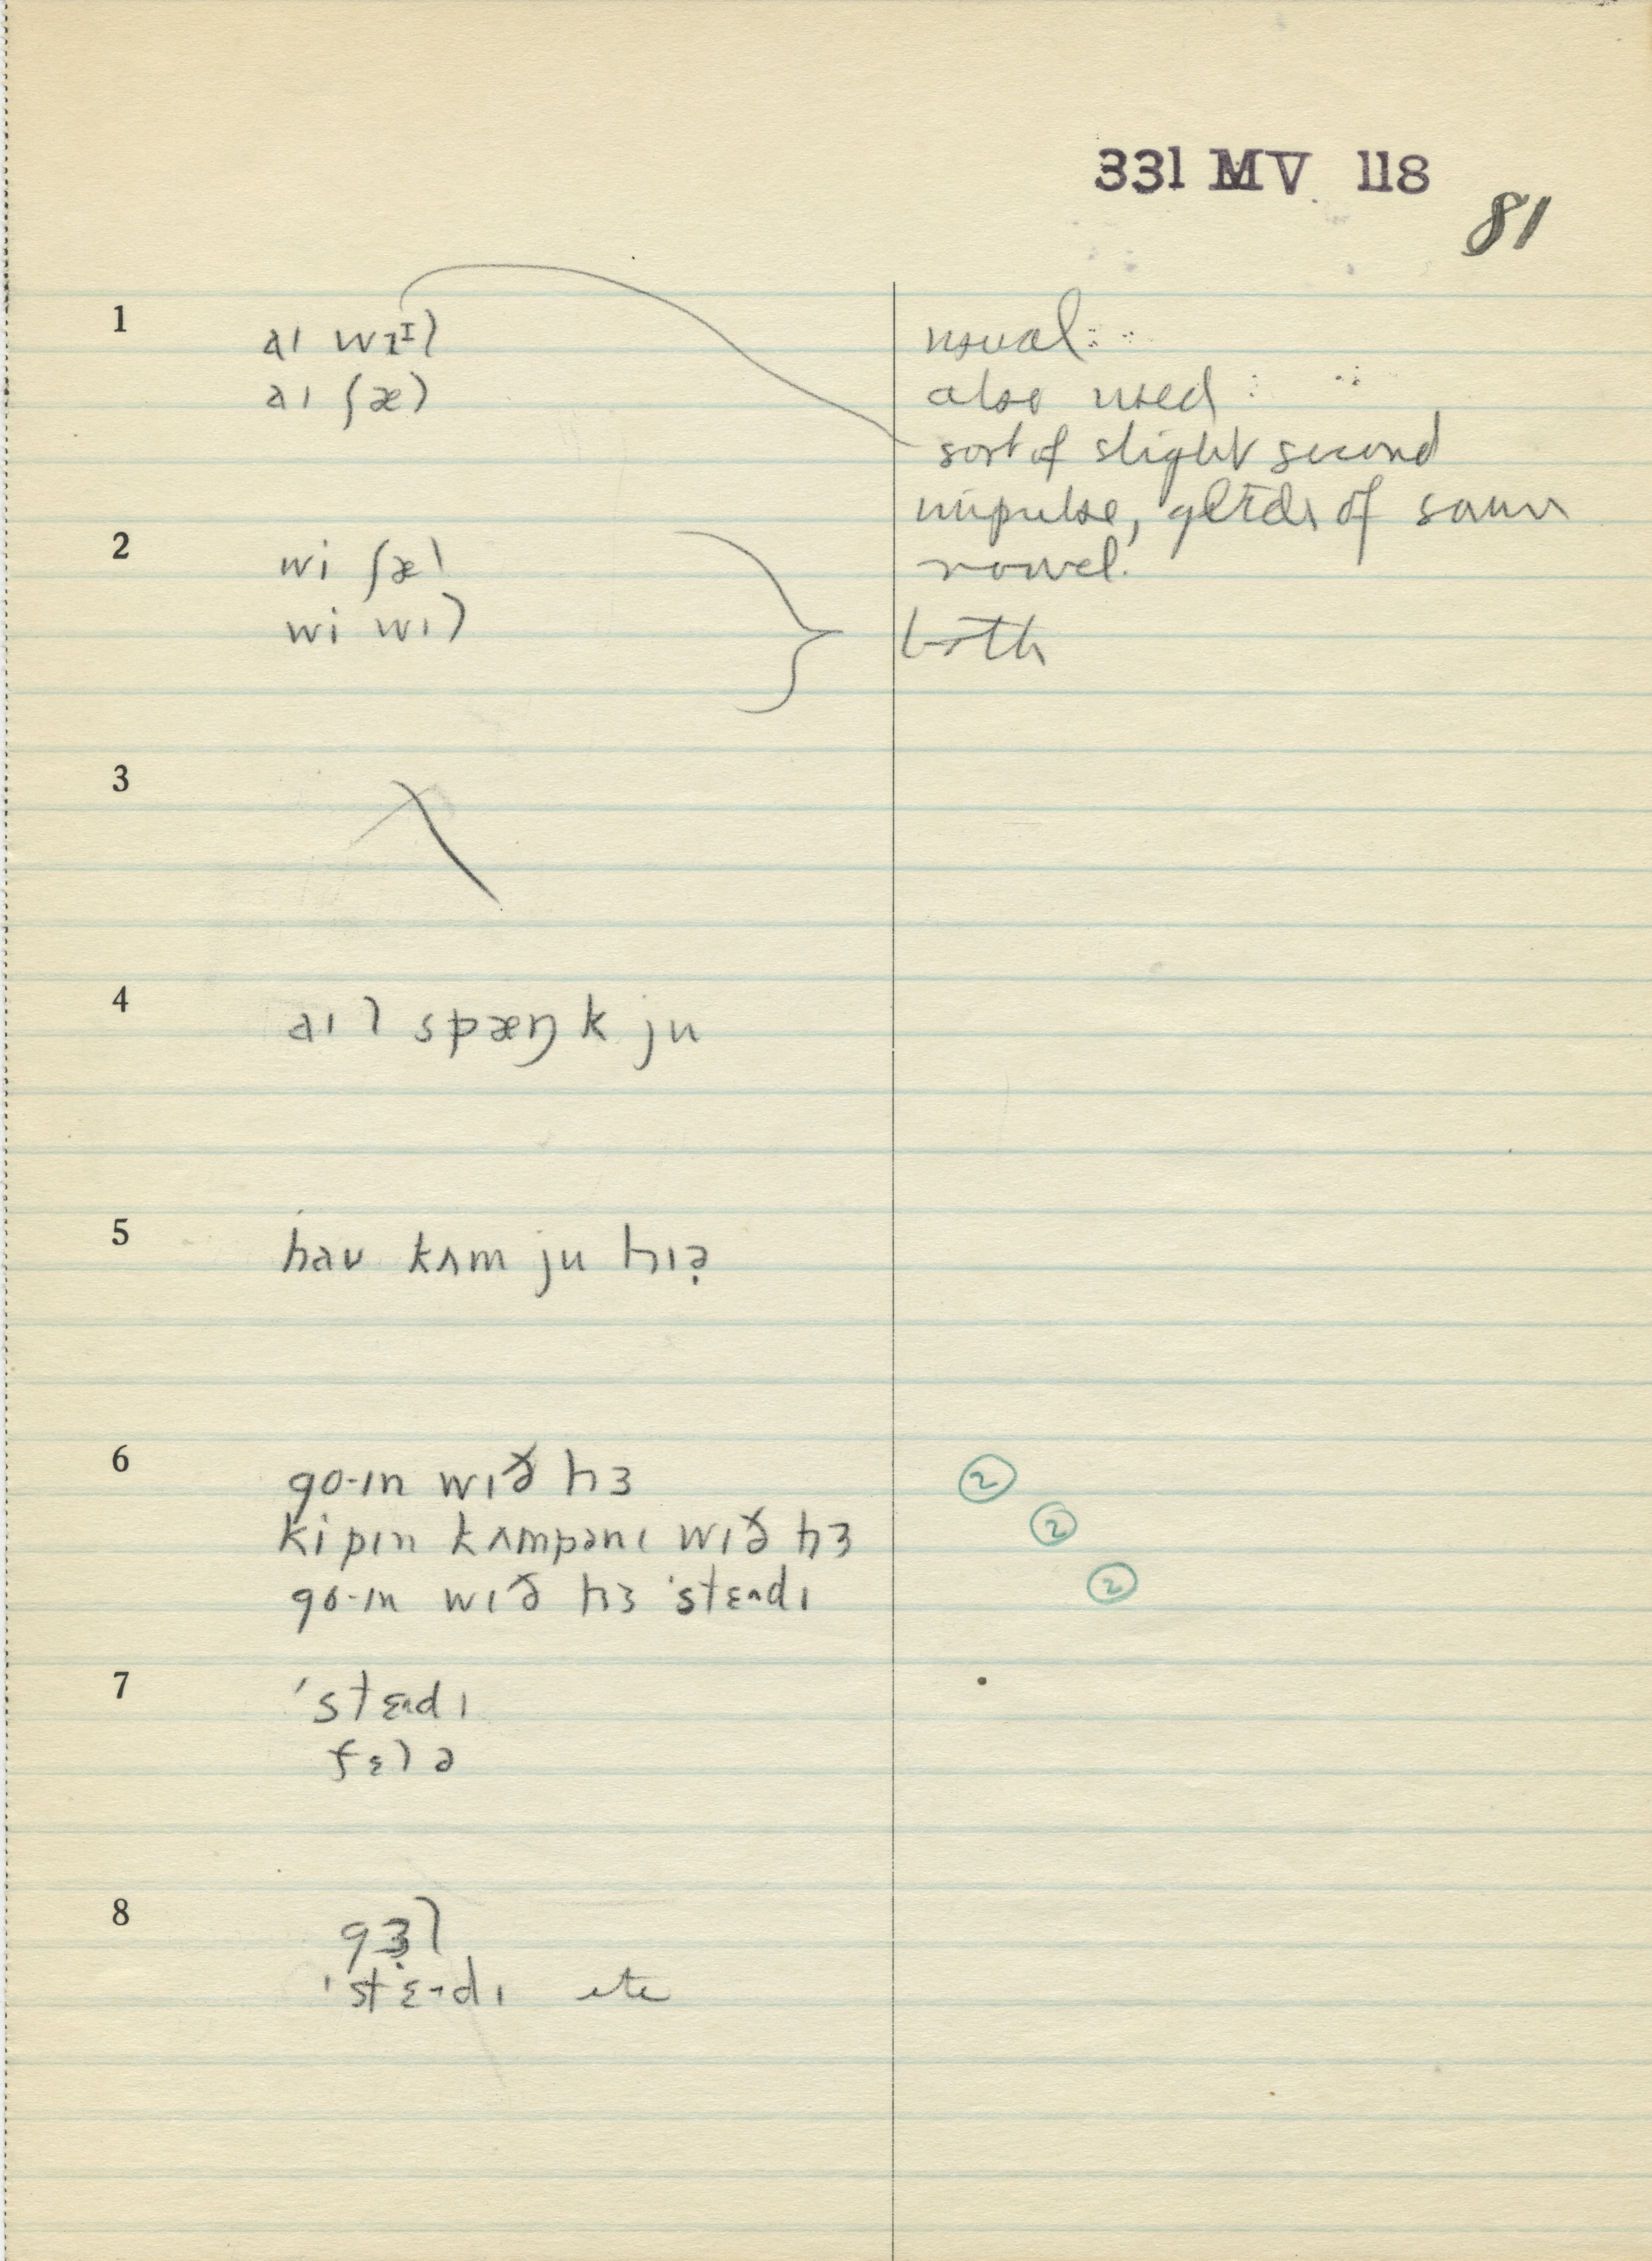 331 MV 118
81
1 aɪ wɪᴵl usual:
aɪ ʃæl also used:
sort of slight second
impulse, glide of same
vowel.
2 wi ʃæl
wi wɪl both
3
4 aɪl spæŋk ju
5 haʊ kʌm ju hɪə̣
6 go·ɪn wɪð hɜ 2
kipɪn kʌmpənɪ wɪð hɜ 2
go·ɪn wɪð hɜ ˈstɛ˄dɪ 2
7 ˈstɛ˄dɪ
fɛlə
8 gɜ̣l
ˈstɛ˄dɪ etc